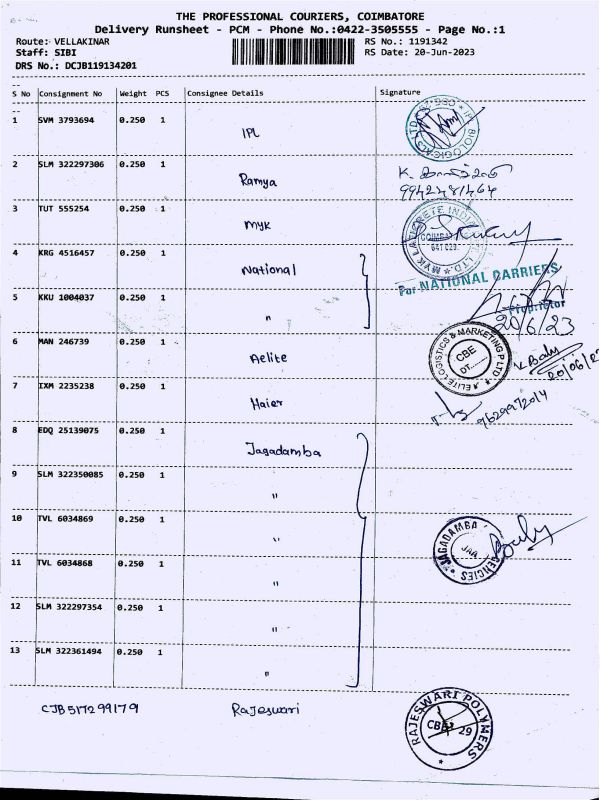 THE PROFESSIONAL COURIERS, COIMBATORE
Delivery Runsheet - PCM - Phone No.:0422-3505555 - Page No.:1
Route: VELLAKINAR RS No.: 1191342
Staff: SIBI RS Date: 20-Jun-2023
DRS No.: DCJB119134201
S No Consignment No Weight PCS Consignee Details Signature
1 SVM 3793694 0.250 1 IPL
2 SLM 322297306 0.250 1 Ramya
K.
9942481464
3 TUT 555254 0.250 1 Myk
MYK LATICRETE INDIA P. LTD.
COIMBATORE
641 029
4 KRG 4516457 0.250 1 National
For NATIONAL CARRIERS
5 KKU 1004037 0.250 1 "
Proprietor
20/6/23
6 MAN 246739 0.250 1 Aelite
ELITE LOGISTICS & MARKETING P LTD
CBE
DT.
20/06/23
7 IXM 2235238 0.250 1 Haier
9629972014
8 EDQ 25139075 0.250 1 Jagadamba
9 SLM 322350085 0.250 1 "
10 TVL 6034869 0.250 1 "
JAGADAMBA AGENCIES
11 TVL 6034868 0.250 1 "
12 SLM 322297354 0.250 1 "
13 SLM 322361494 0.250 1 "
CJB517299179 Rajeswari
RAJESWARI POLYMERS
29